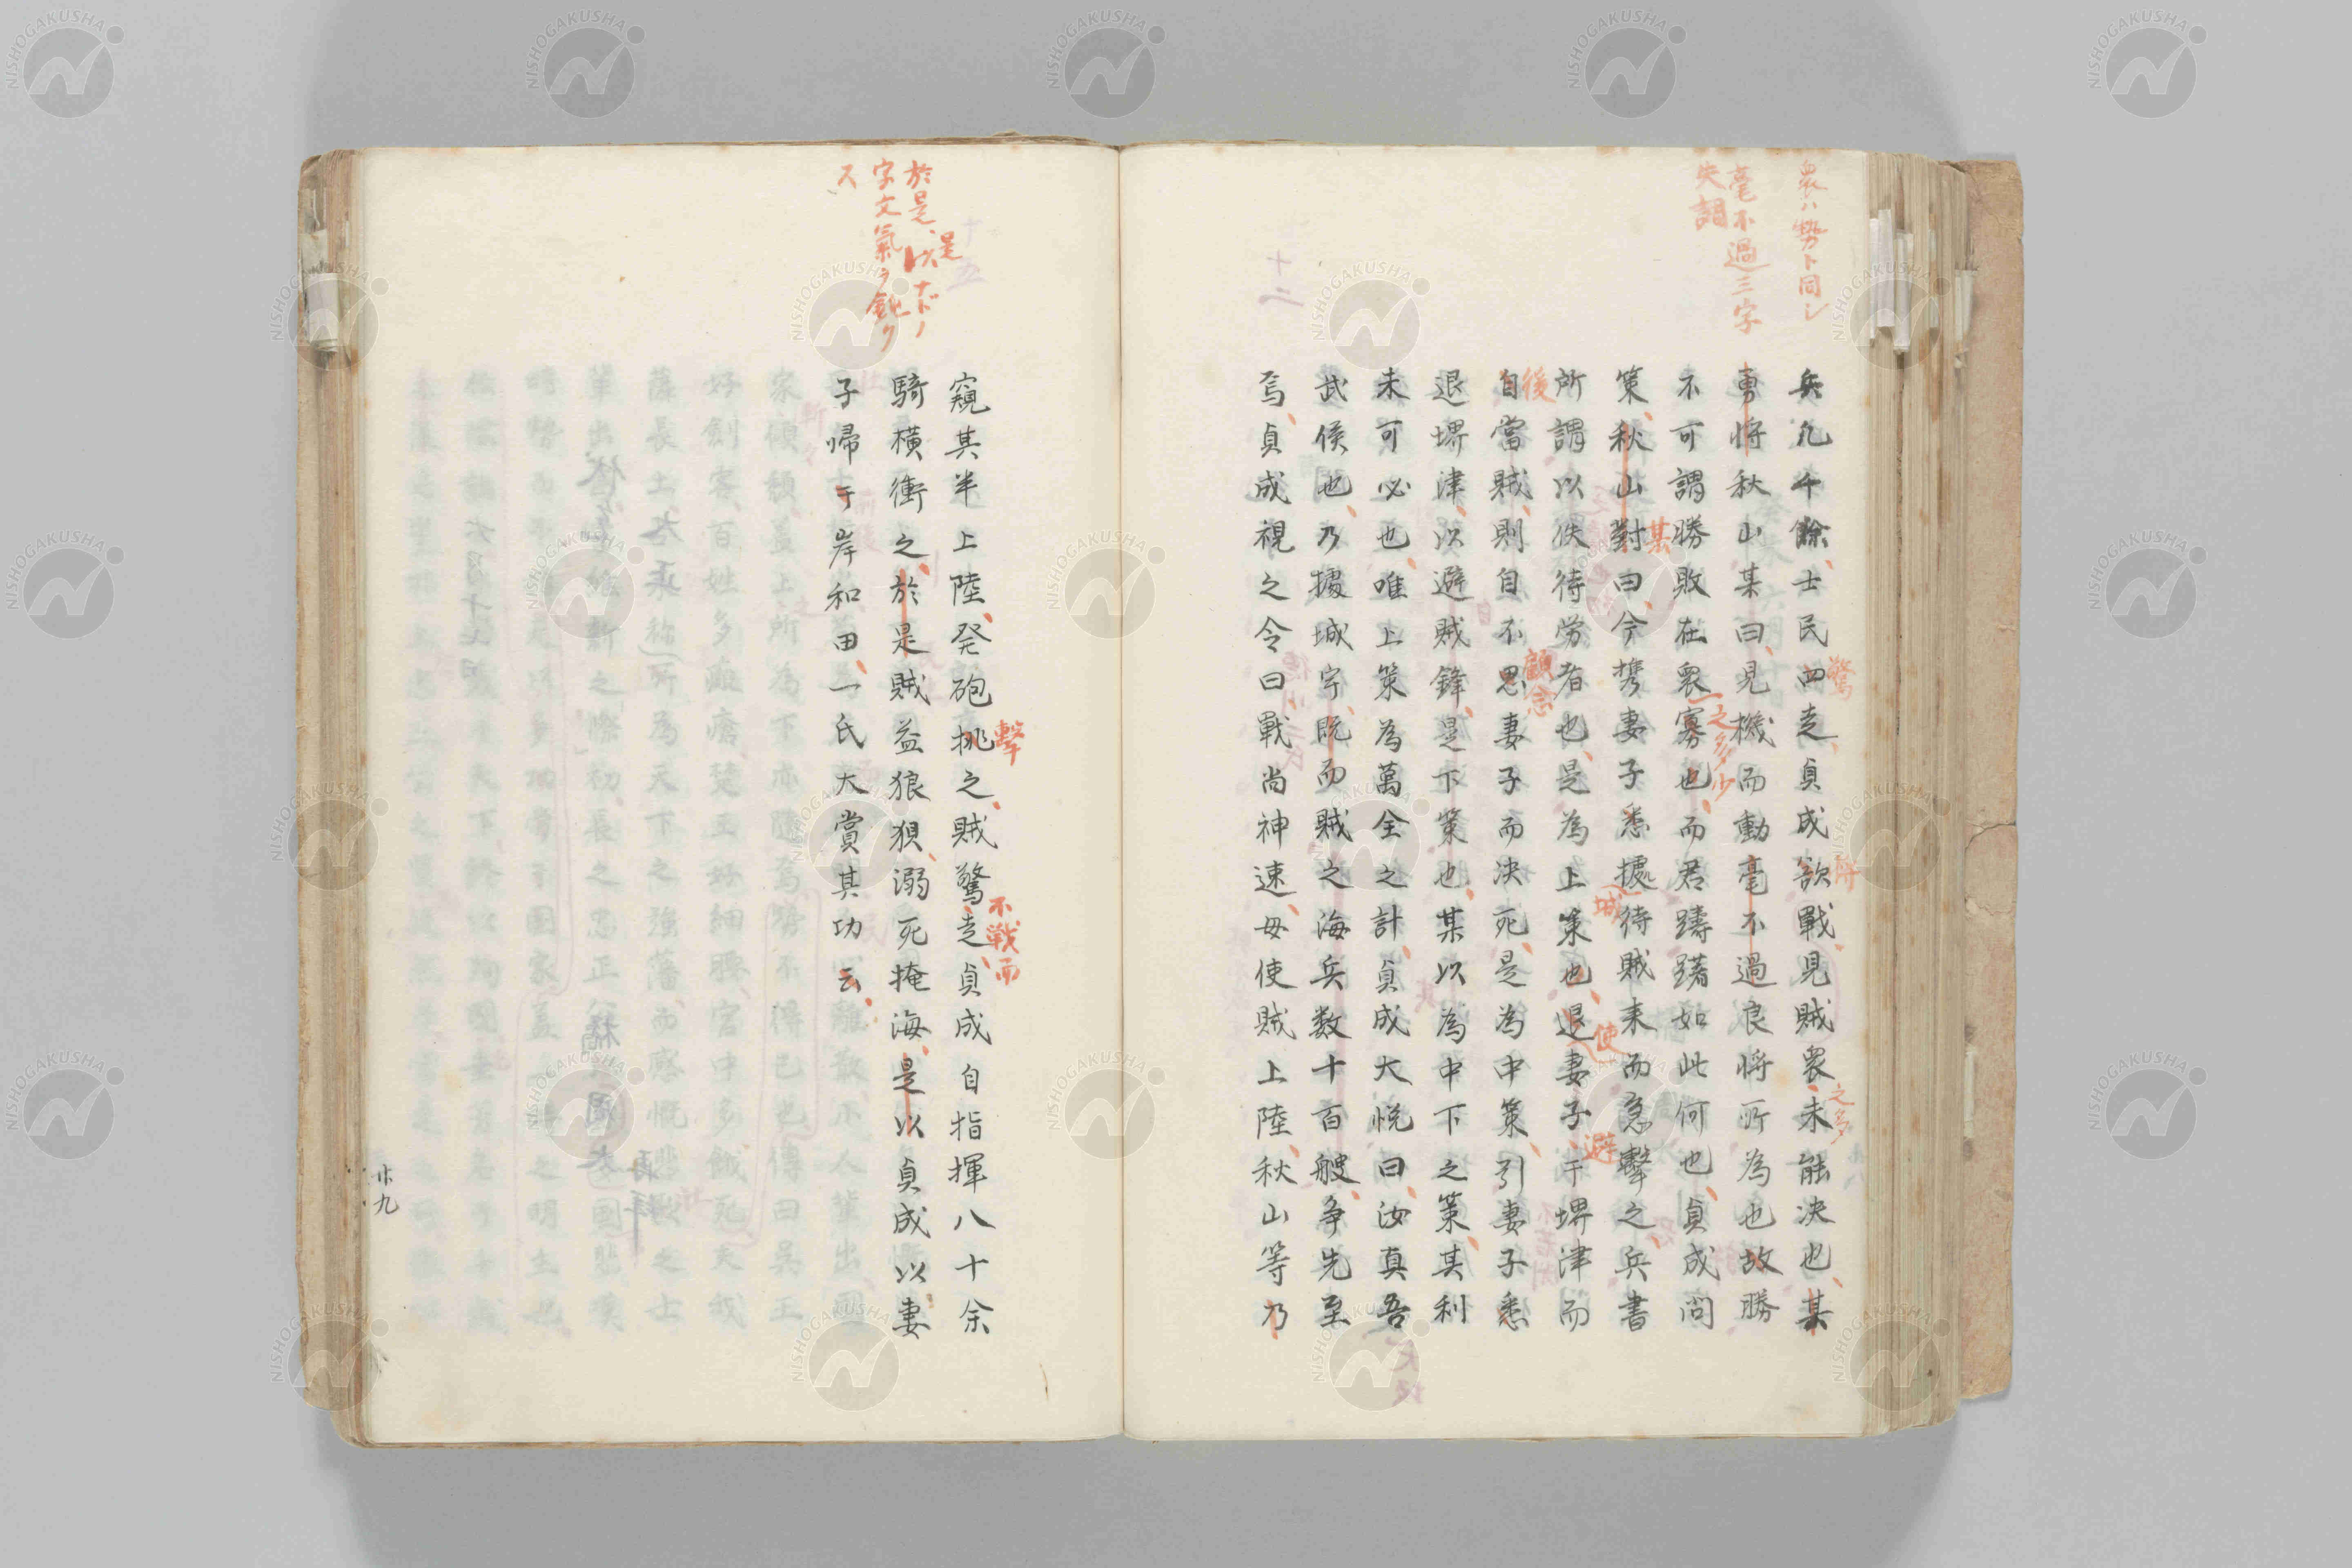 衆ハ勢ト同シ
毫不過三字
失調
兵九千餘、士民四走、貞成欲戰、見賊衆、未能決也、某
驚
将
之多
勇将秋山某曰、見機而動毫不過良将所為也故勝
不可謂勝敗在衆寡也、而君躊躇如此何也、貞成問
之多少
策、秋山對曰、今携妻子悉據待賊来而急擊之、兵書
某
城
所謂以佚待労者也、是為上策也、退妻子于堺津而
使
避
後
自當賊、則自不思妻子而決死、是為中策、引妻子悉
顧念
退堺津、以避賊鋒、是下策也、某以為中下之策、其利
未可必也、唯上策為萬全之計、貞成大悦曰、汝真吾
武侯也、乃據城守、既而賊之海兵数十百艘、争先至
焉、貞成視之令曰、戰尚神速、毋使賊上陸、秋山等乃
十二
於是、是以ナドノ
字文氣ヲ鈍ク
ス
窺其半上陸、発砲挑之、賊驚走、貞成自指揮八十余
擊
不戰而
騎横衝之、於是賊益狼狽、溺死掩海、是以貞成以妻
子帰于岸和田、一氏大賞其功云、
廿九
NISHOGAKUSHA